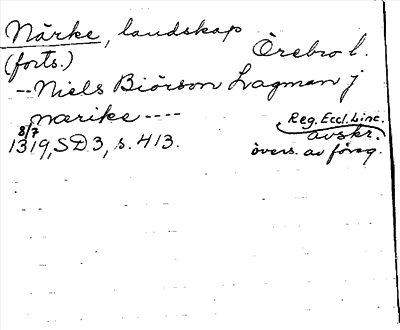 Närke, landskap
Örebro l.
(forts.)
-- Niels Biörson Lagman j
nærike ----
8/7
1319, SD 3, s. 413.
Reg. Eccl. Linc.
avskr.
övers. av föreg.